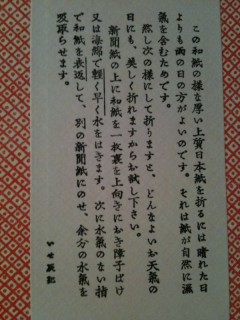 この和紙の様な厚い上質日本紙を折るには晴れた日
よりも雨の日の方がよいのです。それは紙が自然に濕
氣を含むためです。
然し次の様にして折りますと、どんなよいお天氣の
日にも、美しく折れますからお試し下さい。
新聞紙の上に和紙を一枚裏を上向きにおき障子ばけ
又は海綿で軽く早く水をはきます。次に水氣のない指
で和紙を表返して、別の新聞紙にのせ、余分の水氣を
吸取らせます。
いせ辰記